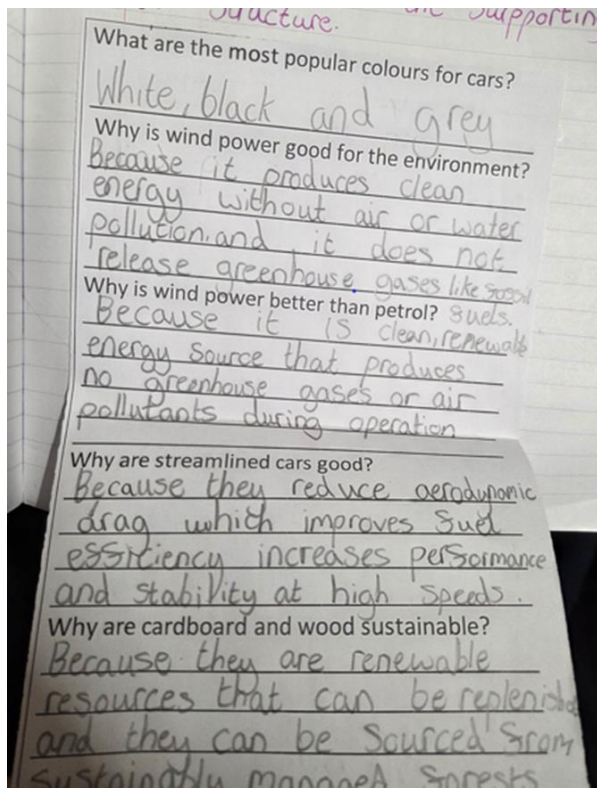 structure. supporting
What are the most popular colours for cars?
White, black and grey
Why is wind power good for the environment?
Because it produces clean
energy without air or water
pollution. and it does not
release greenhouse gases like fossil
fuels.
Why is wind power better than petrol?
Because it is clean, renewable
energy source that produces
no greenhouse gases or air
pollutants during operation
Why are streamlined cars good?
Because they reduce aerodynamic
drag which improves fuel
efficiency increases performance
and stability at high speeds.
Why are cardboard and wood sustainable?
Because they are renewable
resources that can be replenished
and they can be sourced from
sustainably managed forests